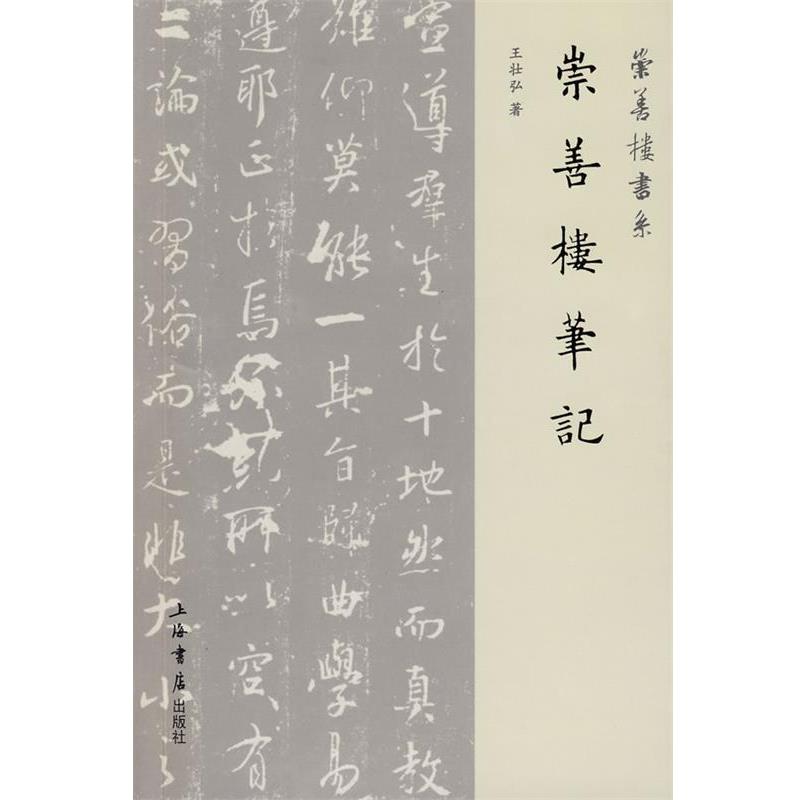 崇善樓書系
崇善樓筆記
王壮弘 著
宣導羣生於十地然而真教
難仰莫能一其旨歸曲學易
遵耶正於焉紛糺所以空有
之論或習俗而是非大小之
上海書店出版社